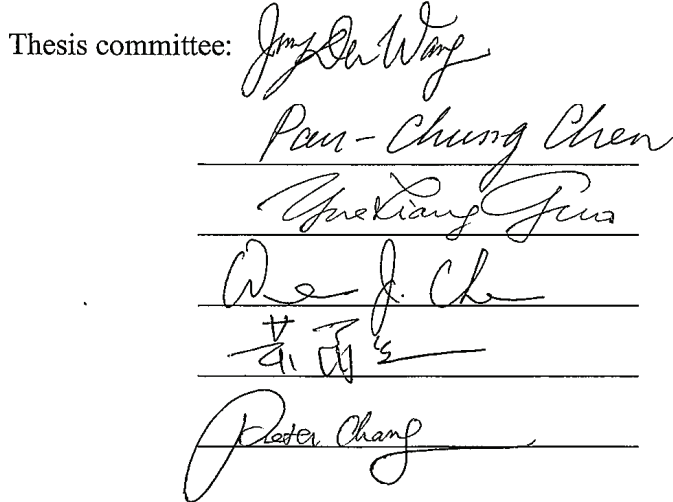 Thesis committee: Jung Der Wang
Pau-Chung Chen
Yue Liang Guo
Wei J. Chen
Peter Chang